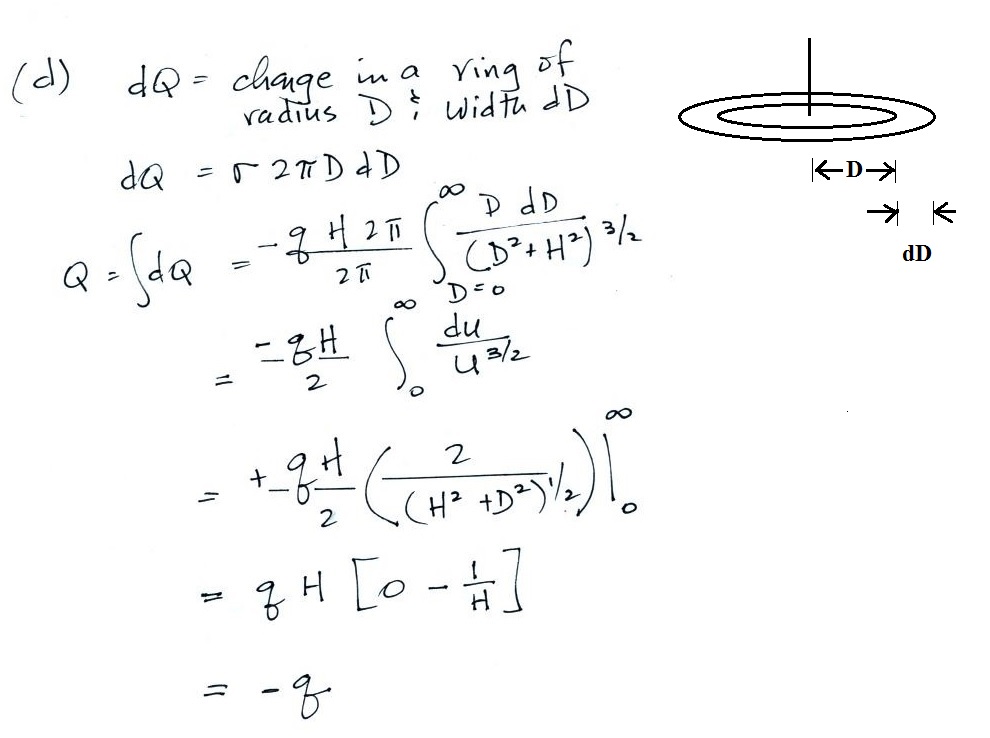 (d) dQ = charge in a ring of
radius D & width dD
dQ = σ 2π D dD
Q = ∫dQ = -q H 2π / 2π ∫_{D=0}^{∞} D dD / (D² + H²)^{3/2}
= -qH / 2 ∫_0^∞ du / u^{3/2}
= + qH / 2 ( 2 / (H² + D²)^{1/2} ) |_0^∞
= q H [0 - 1/H]
= - q
D
dD